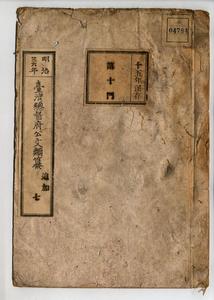 十五年保存
第十門
明治
三六年
臺灣總督府公文類纂
追加
七
04791